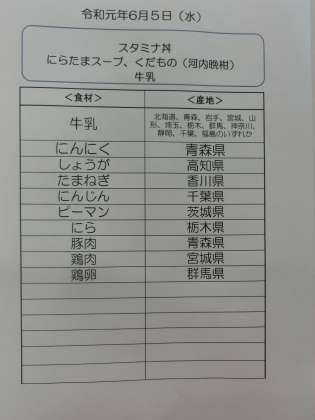 令和元年6月5日（水）
スタミナ丼
にらたまスープ、くだもの（河内晩柑）
牛乳
＜食材＞ ＜産地＞
牛乳 北海道、青森、岩手、宮城、山
形、埼玉、栃木、群馬、神奈川、
静岡、千葉、福島のいずれか
にんにく 青森県
しょうが 高知県
たまねぎ 香川県
にんじん 千葉県
ピーマン 茨城県
にら 栃木県
豚肉 青森県
鶏肉 宮城県
鶏卵 群馬県